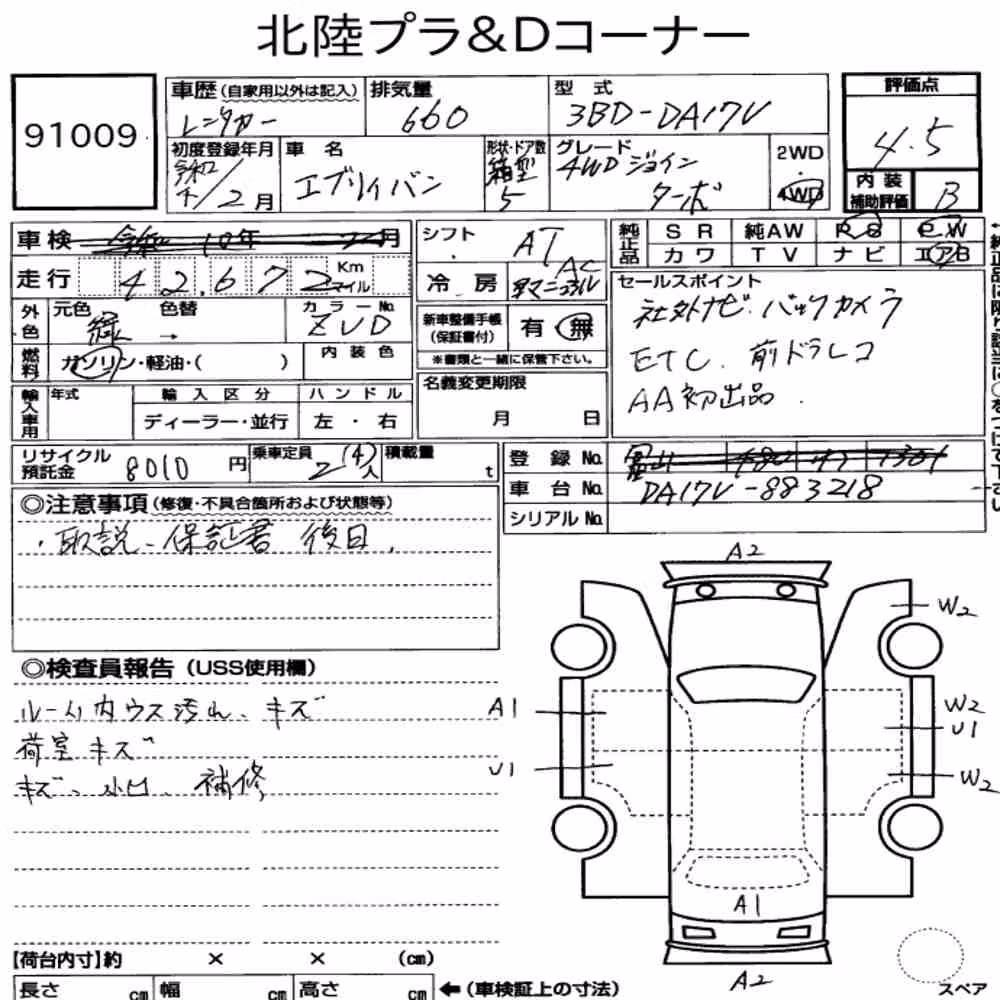 北陸プラ&Dコーナー
91009
車歴(自家用以外は記入) レンタカー
排気量 660
型式 3BD-DA17V
評価点 4.5
内装補助評価 B
初度登録年月 令和 /2月
車名 エブリイバン
形状・ドア数 箱型 5
グレード 4WD ジョイン ターボ
2WD
4WD
車検 令和 10年 月
走行 42,672 Km マイル
シフト AT
冷房 AC
純正品 SR 純AW PS PW
カワ TV ナビ エアB
外色 元色 緑 色替 →
カラーNo ZVD
燃料 ガソリン・軽油・( )
内装色
新車整備手帳(保証書付) 有 無
※書類と一緒に保管下さい。
セールスポイント
社外ナビ.バックカメラ
ETC. 前ドラレコ
AA初出品.
輸入車用 年式 輸入区分 ハンドル
ディーラー・並行 左・右
名義変更期限
月 日
リサイクル預託金 8010円
乗車定員 2(4)人
積載量 t
登録No. 富山 480
車台No. DA17V-883218
シリアルNo.
◎注意事項(修復・不具合箇所および状態等)
・取説-保証書 後日.
◎検査員報告(USS使用欄)
ルーム内ウス汚れ、キズ
荷室キズ
キズ、小凹、補修
A2
W2
A1
W2
U1
U1
W2
A1
A2
スペア
【荷台内寸】約 × × (cm)
長さ cm 幅 cm 高さ cm
←(車検証上の寸法)